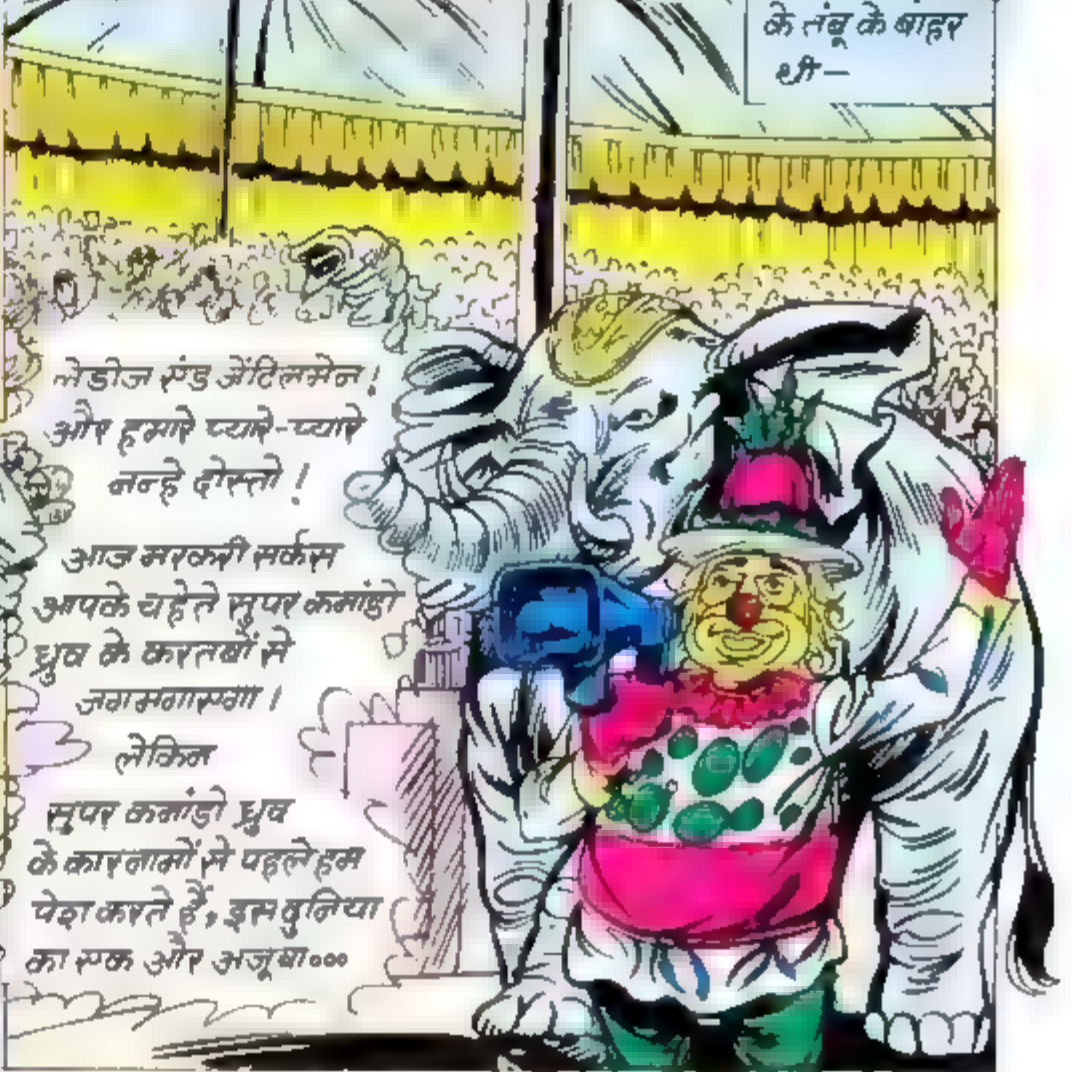 के तंबू के बाहर
थी—
लेडीज एंड जेंटिलमेन!
और हमारे प्यारे-प्यारे
नन्हे दोस्तो!
आज मरकरी सर्कस
आपके चहेते सुपर कमांडो
ध्रुव के करतबों से
जगमगाएगा!
लेकिन
सुपर कमांडो ध्रुव
के कारनामों से पहले हम
पेश करते हैं, इस दुनिया
का एक और अजूबा...